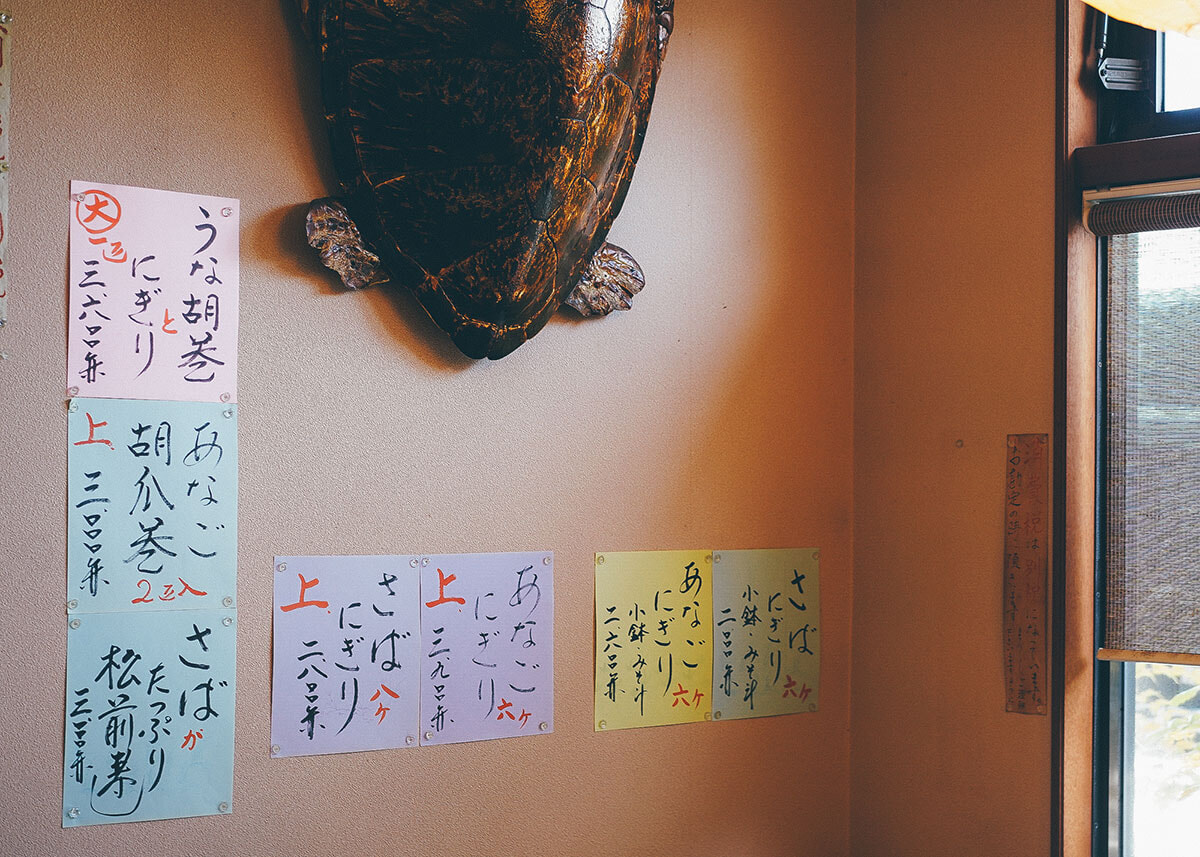 うな胡巻
と
にぎり
大 一匹
三、六〇〇円
あなご
胡瓜巻
2匹入
上
三、〇〇〇円
さばが
たっぷり
松前巻
三、一〇〇円
さば
にぎり 八ケ
上
二、八〇〇円
あなご
にぎり 六ケ
上
三、九〇〇円
あなご
にぎり 六ケ
小鉢・みそ汁
二、六〇〇円
さば
にぎり 六ケ
小鉢・みそ汁
二、一〇〇円
消費税は別 になっています。
お勘定の